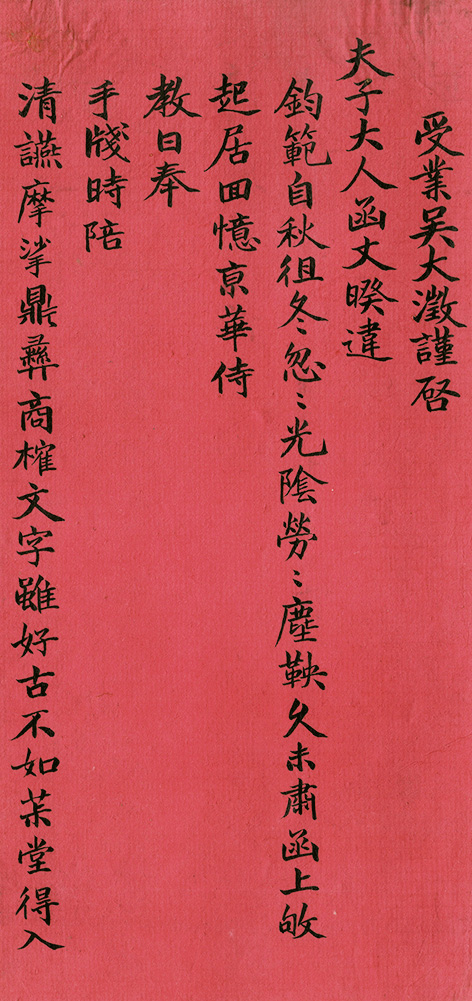 受業吴大澂謹啟
夫子大人函丈暌違
鈞範自秋徂冬忽〻光陰勞〻塵鞅久未肅函上敂
起居回憶亰華侍
教日奉
手牋時陪
清讌摩挲鼎彝商榷文字雖好古不如芣堂得入